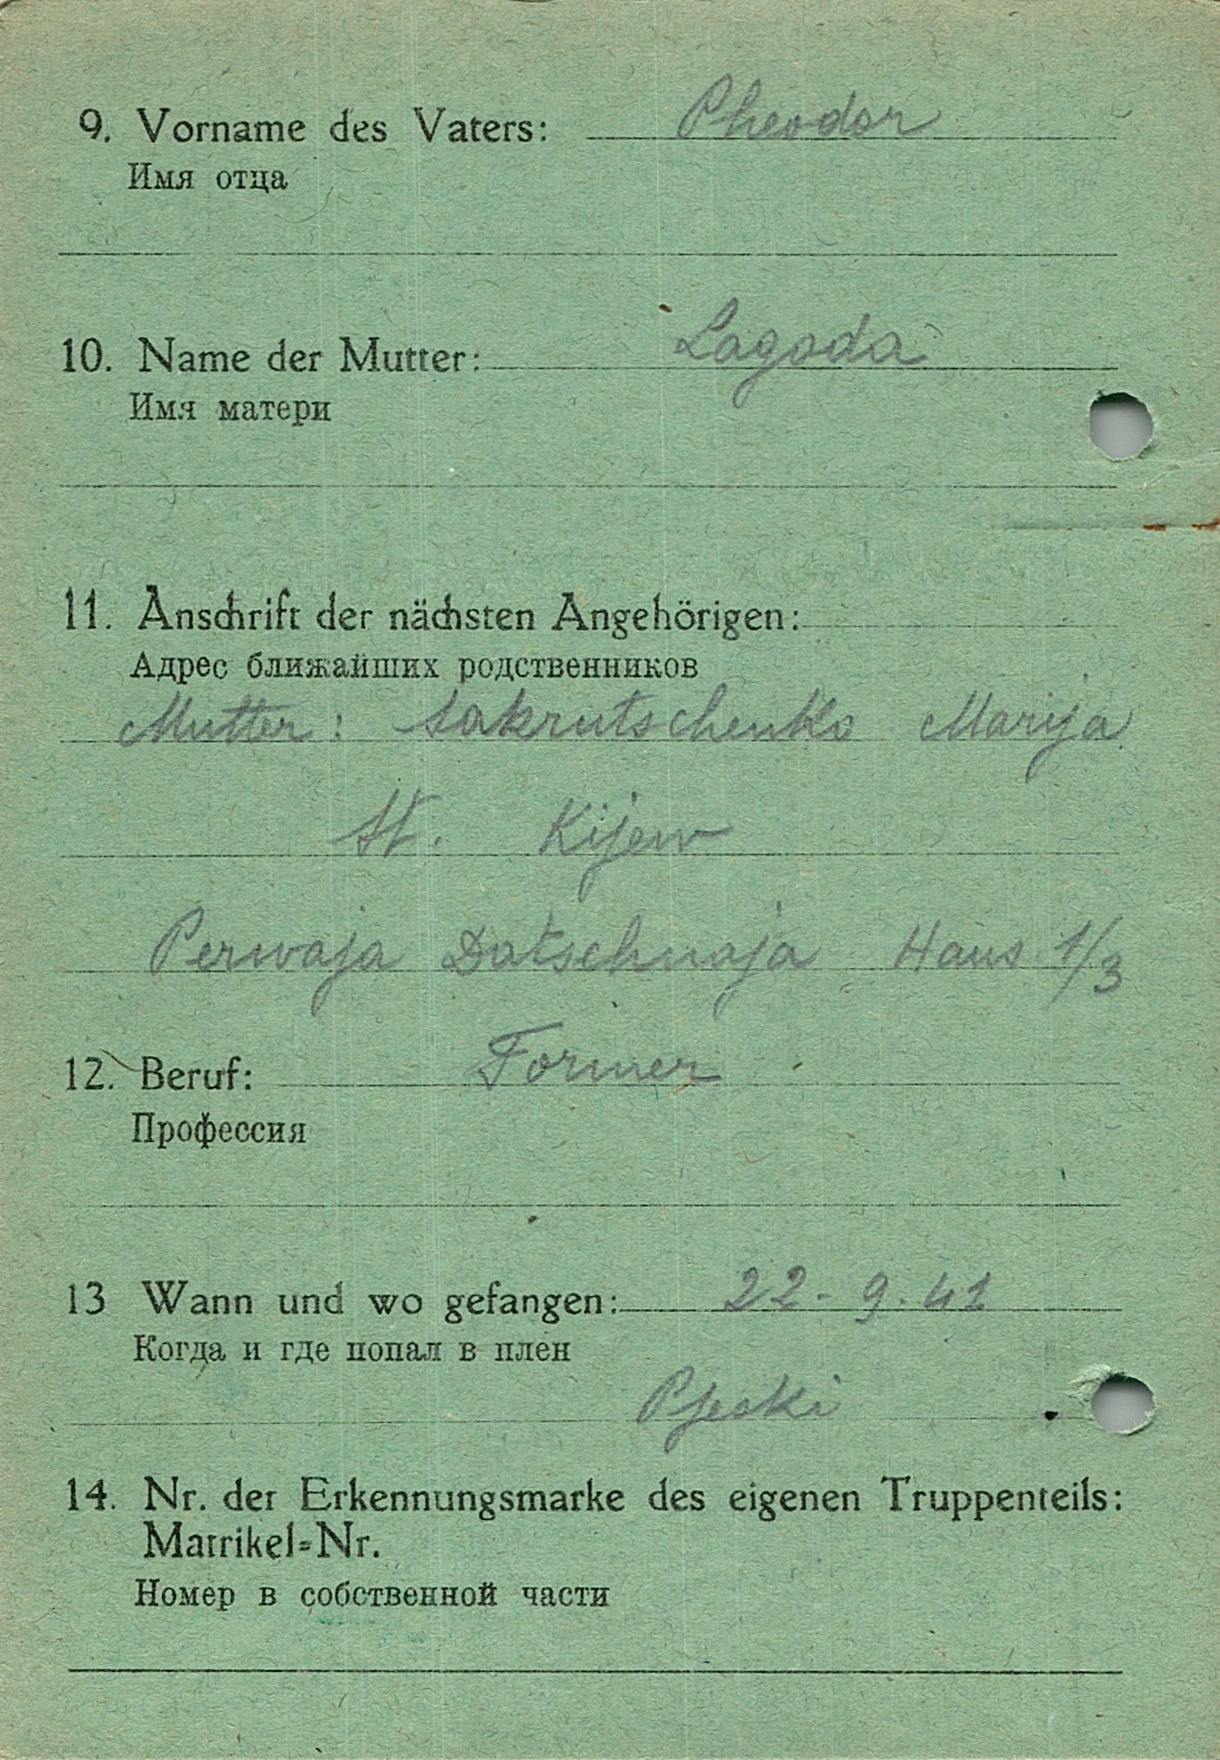 9. Vorname des Vaters: Pheodor
Имя отца
10. Name der Mutter: Lagoda
Имя матери
11. Anschrift der nächsten Angehörigen:
Адрес ближайших родственников
Mutter: Sakrutschenko Marija
St. Kijew
Perwaja Datschnaja Haus 1/3
12. Beruf: Former
Профессия
13 Wann und wo gefangen: 22-9.41
Когда и где попал в плен
Pjeski
14. Nr. der Erkennungsmarke des eigenen Truppenteils:
Matrikel=Nr.
Номер в собственной части